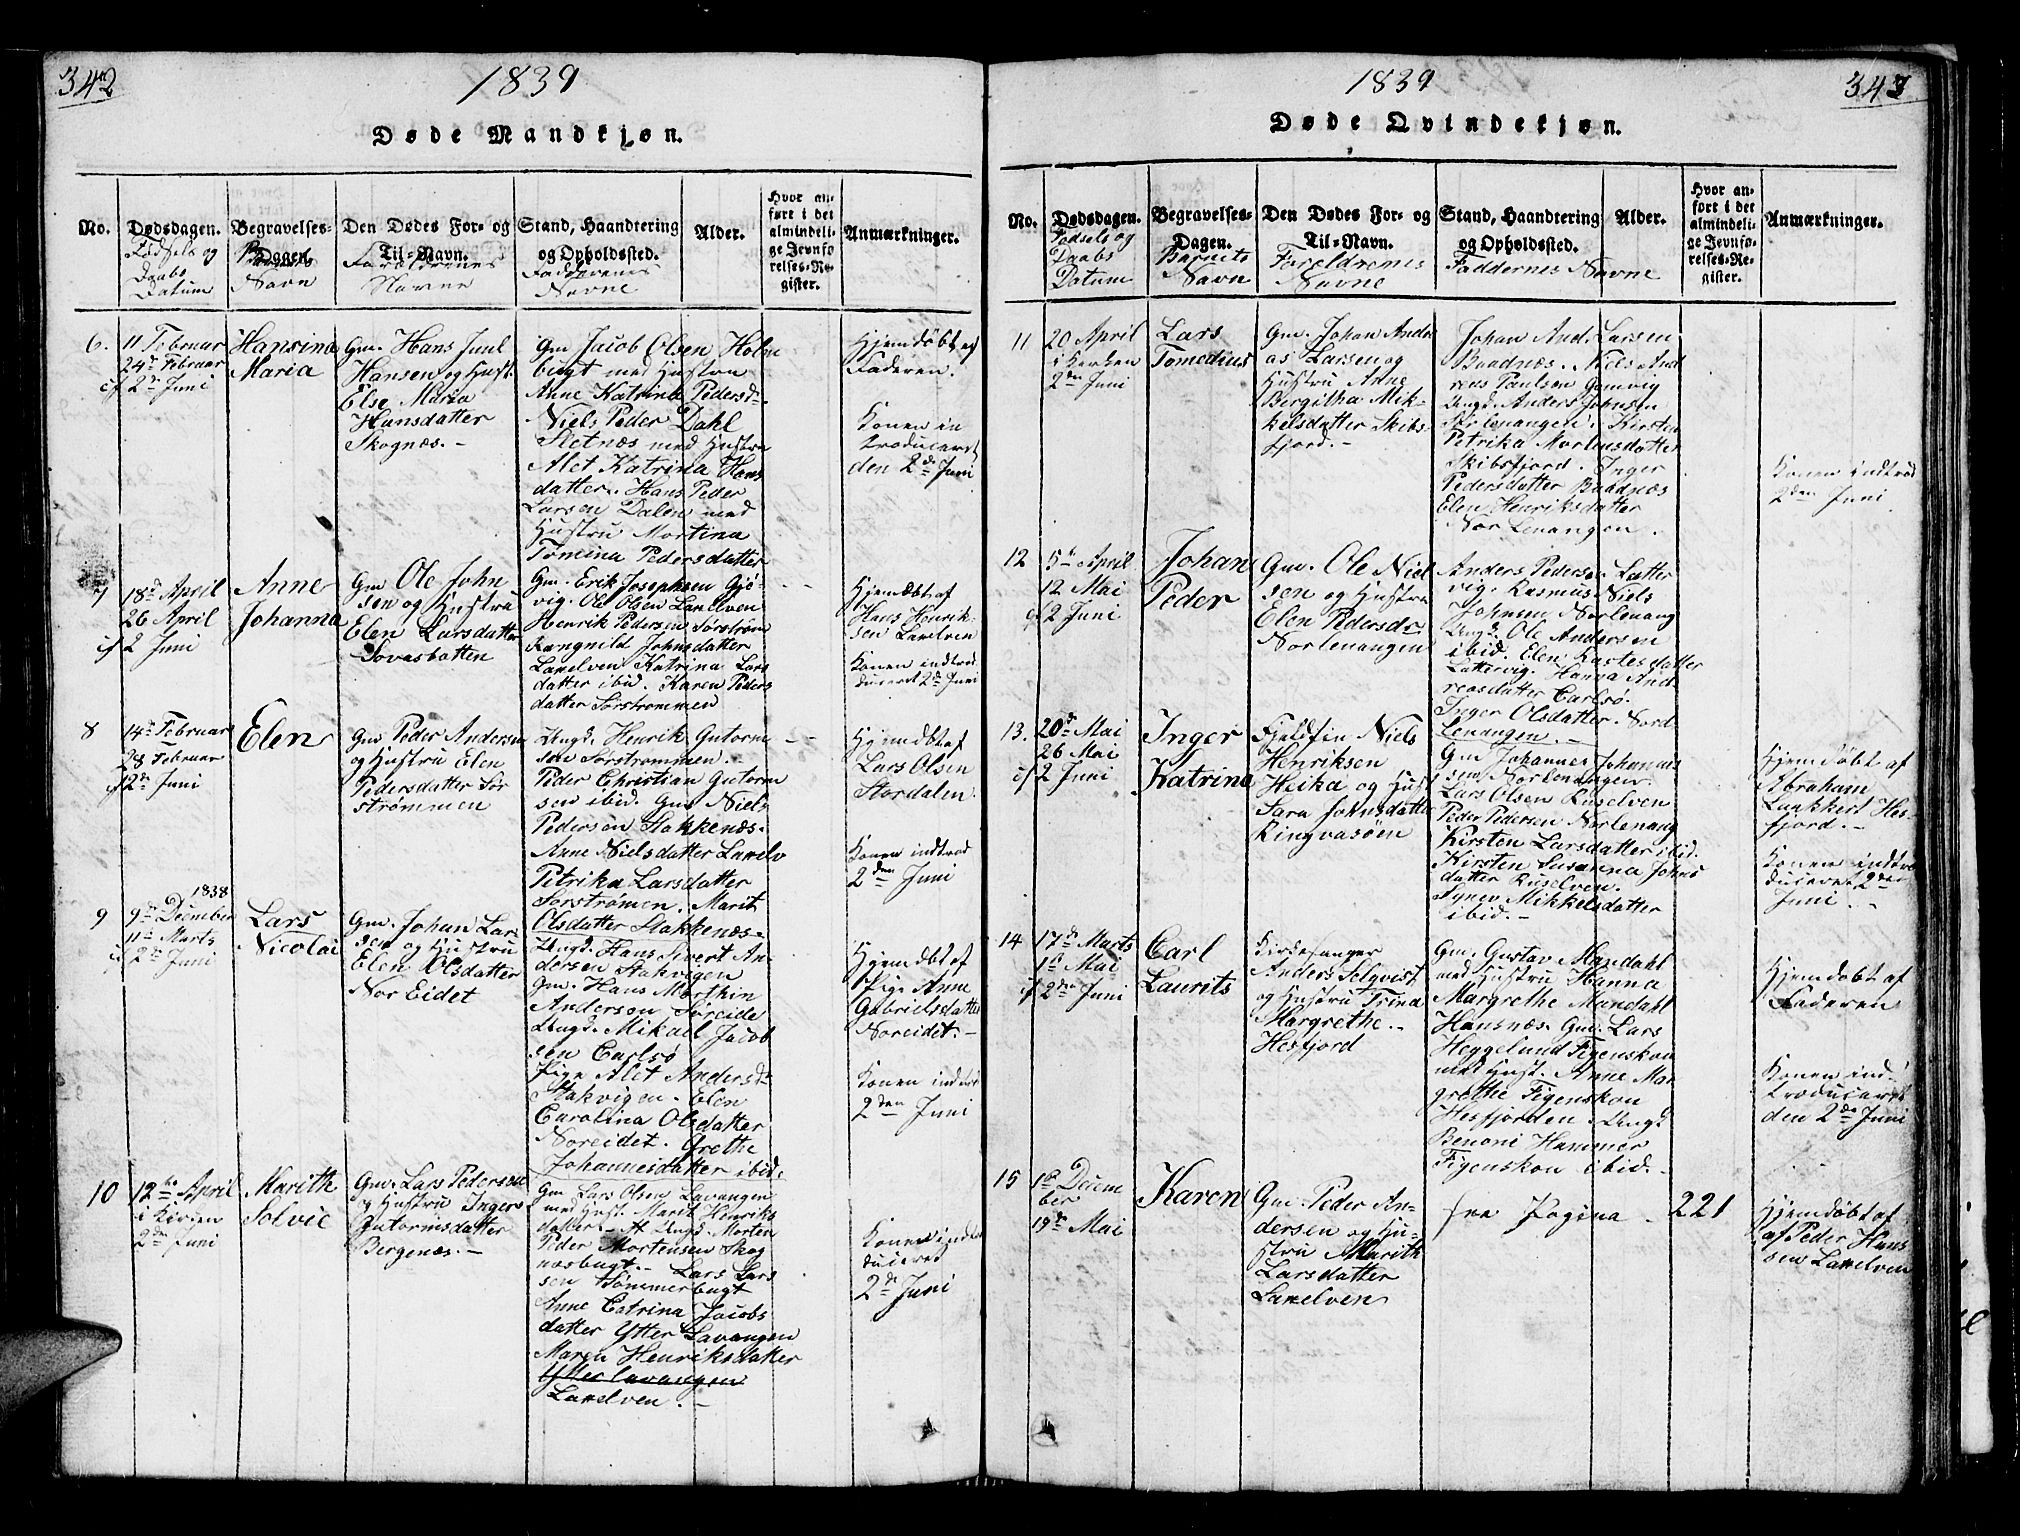 342
1839
Døde Mandkjøn.
No.
Dødsdagen.
Fødsels og
Daabs
Datum
Begravelses-
Dagen
Barnets
Navn
Den Dødes For- og
Til-Navn.
Forældrenes
Navne
Stand, Haandtering
og Opholdssted.
Faddernes
Navne
Alder.
Hvor an-
ført i det
almindeli-
ge Jevnfø-
relses-Re-
gister.
Anmærkninger.
6.
11 Februar
24de Februar
cf 2de Juni
Hansina
Maria
Gm. Hans Juul
Hansen og Hust.
Else Maria
Hansdatter
Skognæs.-
Gm Jacob Olsen Holm
bugt med Hustru
Anne Katrina Pedersd-
Niels Peder Dahl
Sletnæs med Hustru
Alet Katrina Hans
datter. Hans Peder
Larsen Dalen med
Hustru Martina
Tomina Pedersdatter
Hjemdøbt af
Faderen.
Konen in
troduceret
den 2de Juni
7
18de April
26 April
cf 2 Juni
Anne
Johanna
Gm Ole John
sen og Hustru
Elen Larsdatter
Sovasbotten
Gm. Erik Josephsen Gjø-
vig. Ole Olsen Lanelven
Henrik Pedersen Sørstrøm
Rangnild Johnsdatter
Lanelven Katrina Lars
datter ibid. Karen Peders
datter Sørstrommen
Hjemdøbt af
Hans Henrik-
sen Lanelven
Konen introd
duceret 2de Juni
8
14de Februar
28 Februar
cf 2de Juni
Elen
Gm Peder Andersen
og Hustru Elen
Pedersdatter Sør
strømmen
Ungd. Henrik Gutorm
sen Sørstrommen.
Peder Christian Gutorm
sen ibid. Gm Niels
Pedersen Stakkenæs.
Anne Nielsdatter Lanelv
Petrika Larsdatter
Sørstrømen. Marit
Olsdatter Stakkenæs-
Hjemdøbt af
Lars Olsen
Stordalen
Konen indtrod
2den Juni
9
1838
9de December
11te Marts
cf 2de Juni
Lars
Nicolai
Gm. Johan Lar
sen og Hustru
Elen Olsdatter
Nor Eidet
Ungd. Hans Sivert An-
dersen Stakvigen
Gm. Hans Morthin
Anderson Soreide
Ungd. Mikael Jacob
sen Carlsø
Pige Alet Andersd-
Stakvigen. Elen
Carolina Olsdatter
Noreidet. Grethe
Johannesdatter ibid.
Hjemdøbt af
Pige Anne
Gabrielsdatter
Noreidet.-
Konen indtrod
2den Juni
10
12te April
i Kirken
2de Juni
Marith
Solvie
Gm. Lars Pedersen
og Hustru Inger
Gutormsdatter
Bergenæs.-
Gm Lars Olsen Lavangen
med Hust. Marit Henriks
datter. Ungd. Morten
Peder Mortensen Skog
næsbugt.- Lars Lars
sen Sømmerbugt
Anne Catrina Jacobs
datter Ytter Lavangen
Maren Henriksdatter
Ytter Lavangen
Lanelven.
Konen indtro
duceret
2de Juni
1839
343
Døde Qvindekjøn.
No.
Dødsdagen.
Fødsels og
Daabs
Datum
Begravelses-
Dagen.
Barnets
Navn
Den Dødes For- og
Til-Navn.
Forældrenes
Navne
Stand, Haandtering
og Opholdssted.
Faddernes Navne
Alder.
Hvor an-
ført i det
almindeli-
ge Jevnfø-
relses-Re-
gister.
Anmærkninger.
11
20 April
i Kirken
2den Juni
Lars
Tomedius
Gm. Johan Andre
as Larsen og
Hustru Anne
Bergitha Mik-
kelsdatter Skibs-
fjord.-
Johan And. Larsen
Baadnæs. Niels And
reas Paulsen Gamvig
Ungd. Anders Johnsen
Sørlenangen. Kirsten
Petrika Mortensdatter
Skibsfjord. Inger
Pedersdatter Baadnæs
Elen Henriksdatter
Nor Lenangen.
Konen indtrod
2den Juni
12
5te April
12 Mai
cf 2 Juni
Johan
Peder
Gm. Ole Niel
sen og Hustru
Elen Pedersdr
Norlenangen
Anders Pederse. Latter
vig. Rasmus Niels
Johnsen Norlenang
Ungd. Ole Andersen
ibid. Elen Rastesdatter
Lattervig. Hanna And
reasdatter Carlsø.
Inger Olsdatter. Nord
Lenangen.-
13.
20de Mai
26 Mai
cf 2 Juni
Inger
Katrina
Fjeldfin Niels
Henriksen
Heika og Hust
Sara Johnsdatter
Ringvasöen
Gm Johannes Johannes
sen Norlenangen.
Lars Olsen Ruselven
Peder Pedersen Norlenang
Kirsten Larsdatter ibid.
Kirsten Susanna Johns
datter Ruselven.
Synev Mikkelsdatter
ibid.-
Hjemdøbt af
Abraham
Laukkert Hes-
fjord.-
Konen indtro
duceret 2den
Juni.
14
17de Marts
1te Mai
cf 2den Juni
Carl
Laurits
Kirkesanger
Anders Selqvist
og Hustru Trina
Margrethe.-
Hesfjord
Gm. Gustav Mandahl
med Hustru Hanna
Margrethe Mandahl
Hansnæs. Gm. Lars
Heggelund Figenskou
med Hust. Anne Mar
grethe Figenskou
Hesfjorden. Ungd
Benoni Hammer
Figenskou ibid.-
Hjemdøbt af
Faderen
Konen ind-
troduceret
den 2de Juni
15
1te Decem
ber
19de Mai
Karen
Gm. Peder An-
dersen og Hu-
stru Marith
Larsdatter
Lanelven
see Pagina. 221
Hjemdøbt af
af Peder Hans
sen Lanelven